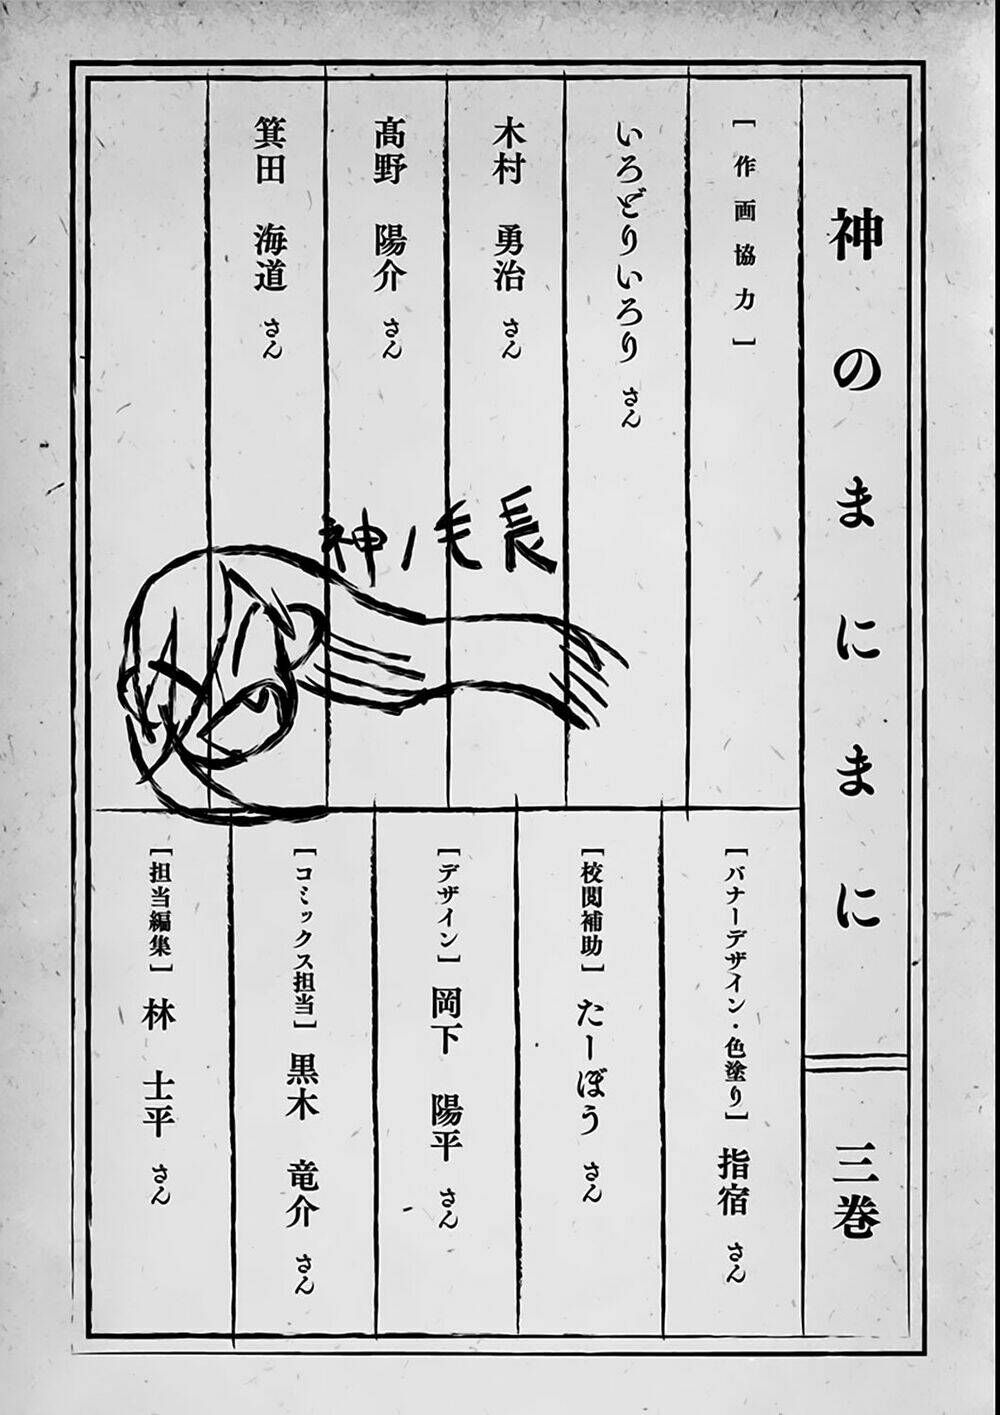 神のまにまに
三巻
[作画協力]
いろどりいろり さん
木村 勇治 さん
髙野 陽介 さん
箕田 海道 さん
神ノ毛長
[バナーデザイン・色塗り] 指宿 さん
[校閲補助] たーぼう さん
[デザイン] 岡下 陽平 さん
[コミックス担当] 黒木 竜介 さん
[担当編集] 林 士平 さん